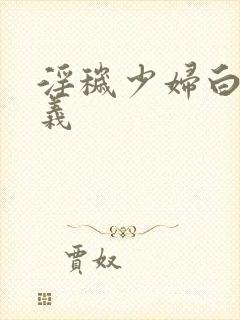 淫穢少婦白
義
賈奴